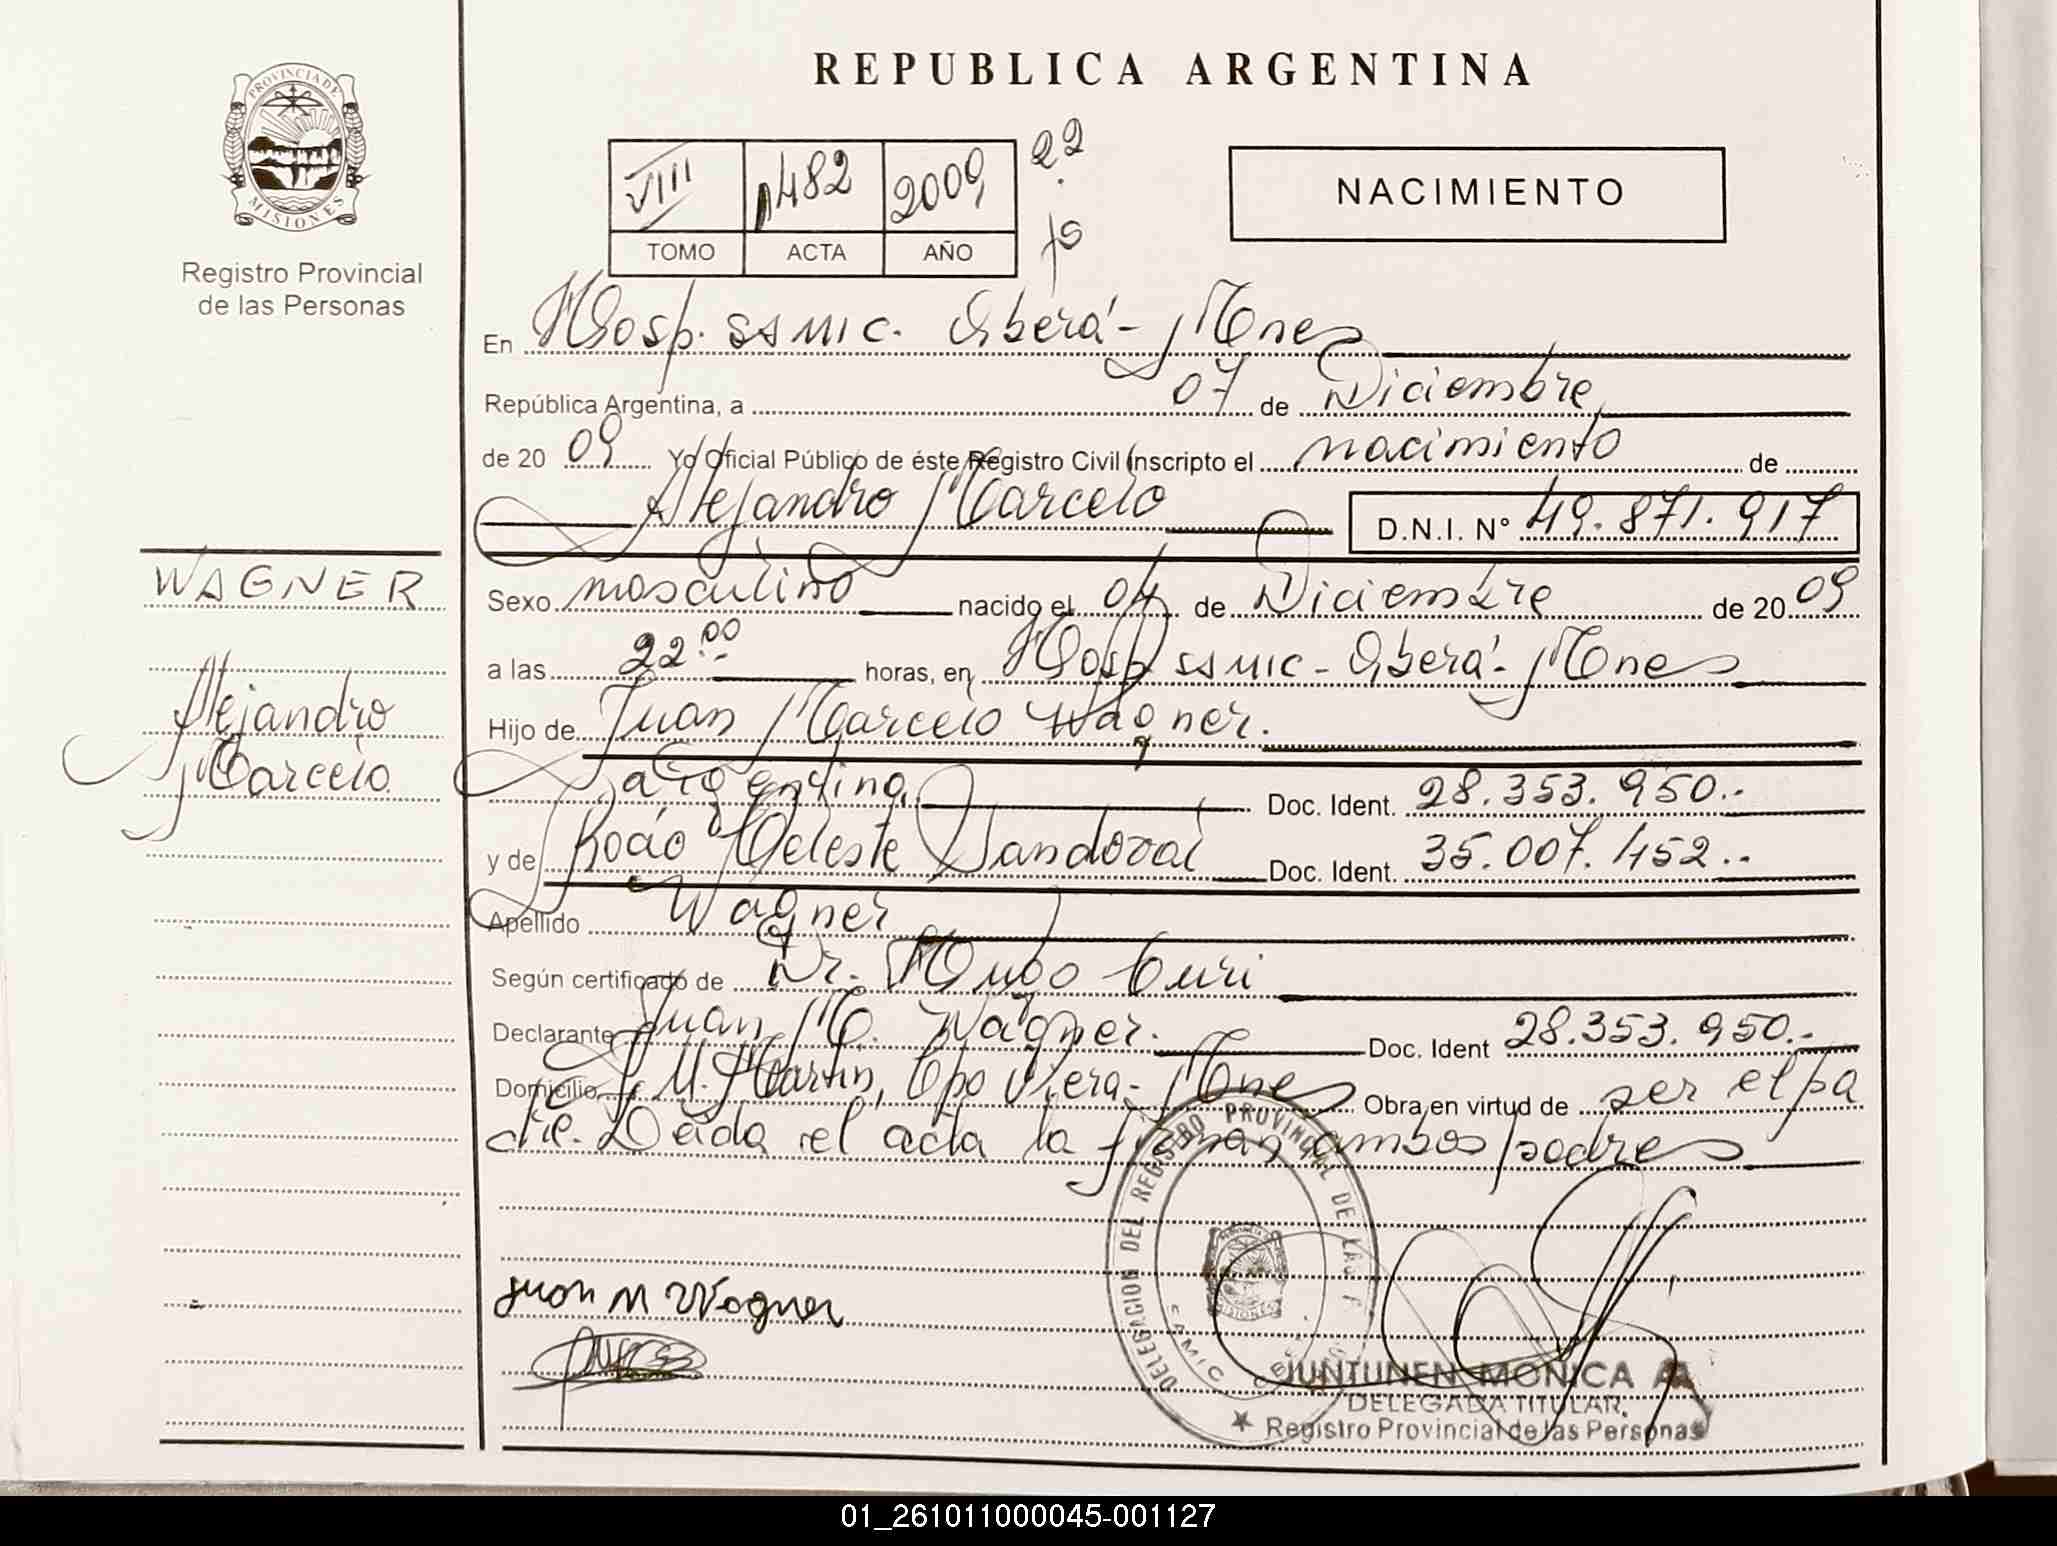 REPUBLICA ARGENTINA
PROVINCIA DE MISIONES
Registro Provincial
de las Personas
VIII 1482 2009 22
TOMO ACTA AÑO
NACIMIENTO
En Hosp. SAMIC. Oberá - Mnes
República Argentina, a 07 de Diciembre
de 20 09 Yo Oficial Público de éste Registro Civil Inscripto el nacimiento de
Alejandro Marcelo D.N.I. N° 49.871.917
WAGNER
Alejandro
Marcelo
Sexo masculino nacido el 04 de Diciembre de 20 09
a las 22.00 horas, en Hosp SAMIC - Oberá - Mnes
Hijo de Juan Marcelo Wagner.
argentino Doc. Ident. 28.353.950.-
y de Rocío Celeste Sandoval Doc. Ident. 35.007.452.-
Apellido Wagner
Según certificado de Dr. Hugo Curi
Declarante Juan M. Wagner. Doc. Ident 28.353.950.-
Domicilio M. Martin, Cpo Viera - Mnes Obra en virtud de ser el pa
dre. Leida el acta la firman ambos padres
Juan M Wagner
DELEGACION DEL REGISTRO PROVINCIAL DE LAS P
SAMIC
JUNTUNEN MONICA A
DELEGADA TITULAR
Registro Provincial de las Personas
01_261011000045-001127